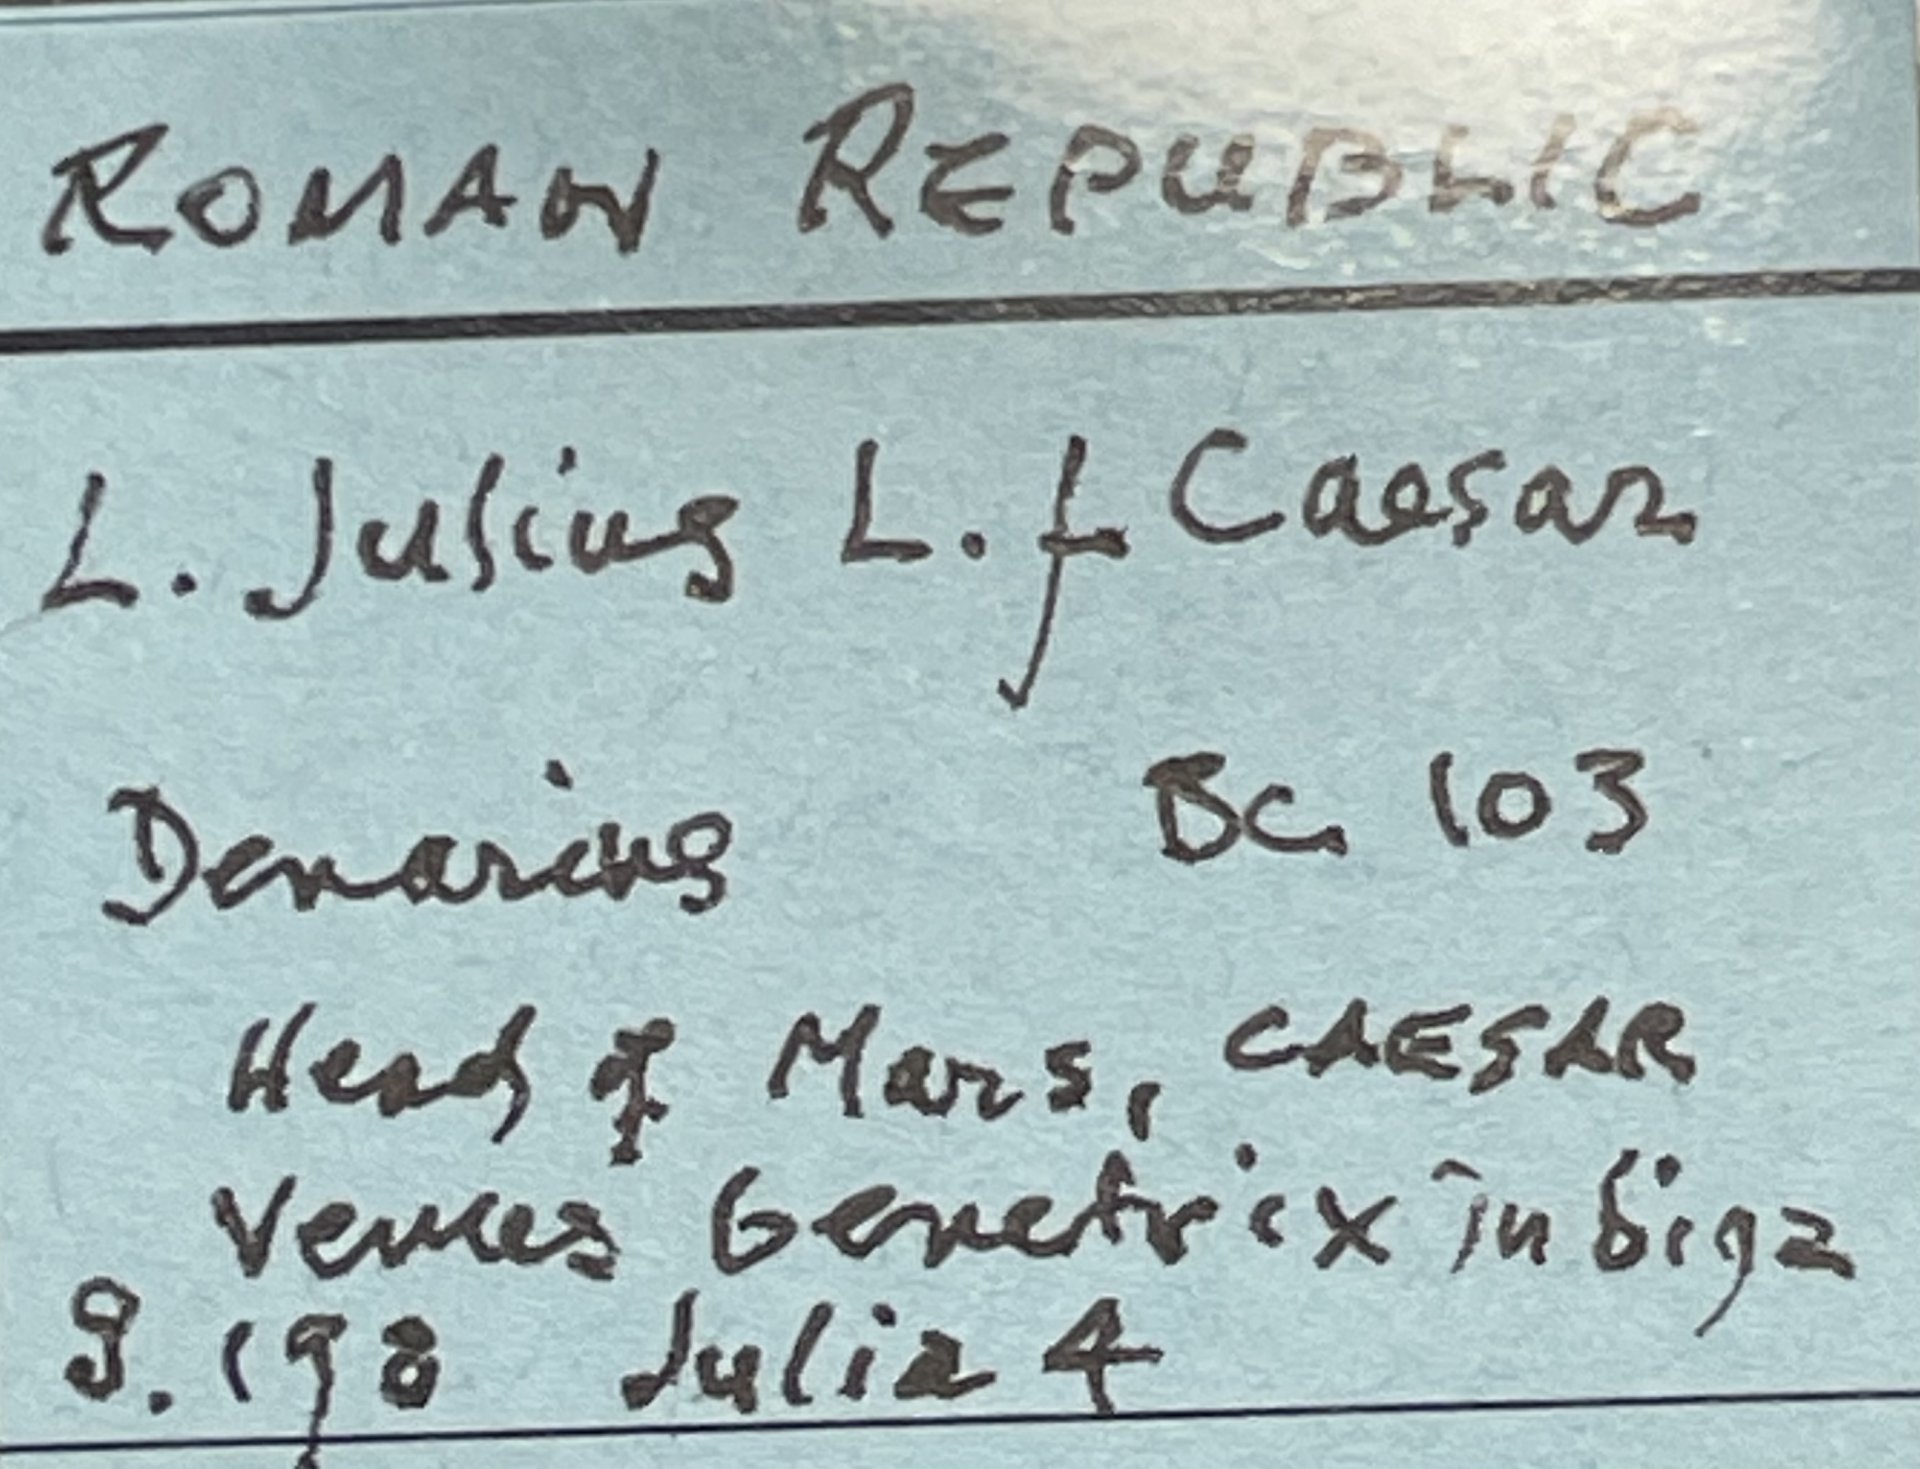 ROMAN REPUBLIC
L. Julius L. f Caesar
Denarius BC. 103
Head of Mars, CAESAR
Venus Genetrix in biga
S. 198 Julia 4